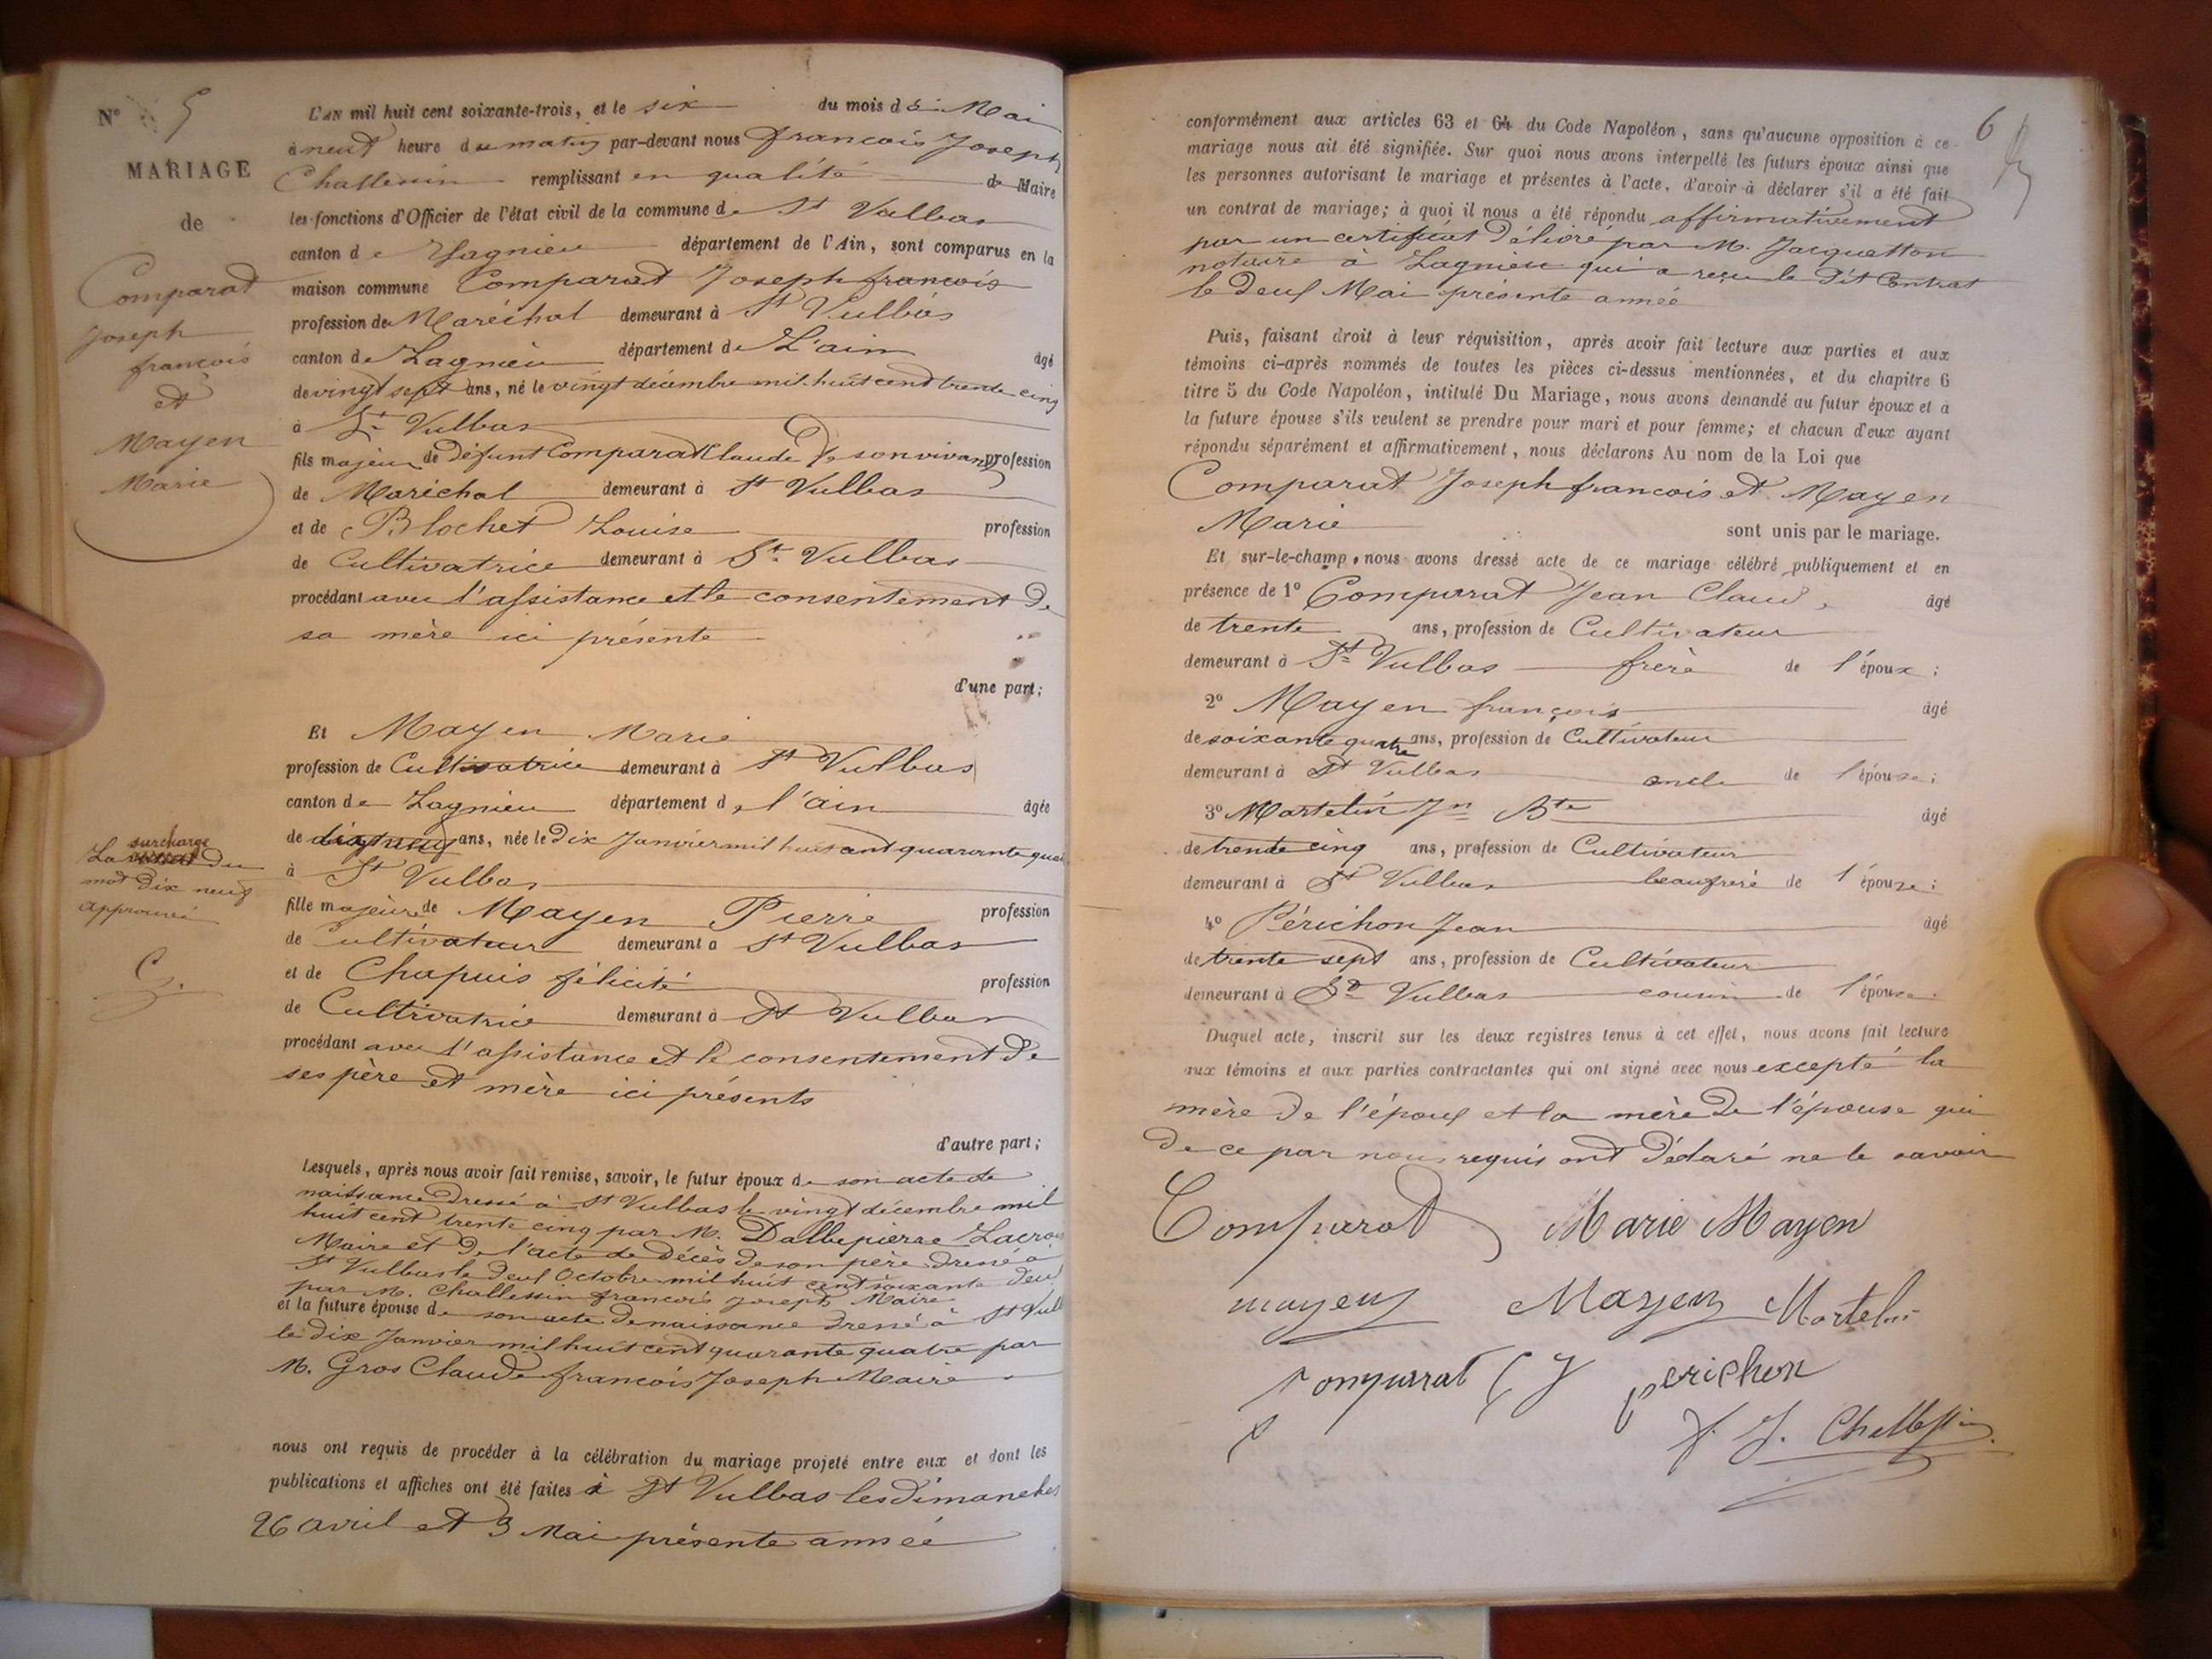 N° 5
MARIAGE
de
Comparat
Joseph
françois
et
Mayen
Marie
surcharge
La du
mot dix neuf
approuvé
C.
L'AN mil huit cent soixante-trois, et le six du mois de Mai
à neuf heure du matin par-devant nous françois Joseph
Challessin remplissant en qualité de Maire
les fonctions d'Officier de l'état civil de la commune de St Vulbas
canton de Lagnieu département de l'Ain, sont comparus en la
maison commune Comparat Joseph françois
profession de Maréchal demeurant à St Vulbas
canton de Lagnieu département de L'ain âgé
de vingt sept ans, né le vingt décembre mil huit cent trente cinq
à St Vulbas
fils majeur de défunt Comparat Claude de son vivant profession
de Maréchal demeurant à St Vulbas
et de Blochet Louise profession
de Cultivatrice demeurant à St Vulbas
procédant avec l'assistance et le consentement de
sa mère ici présente
d'une part;
Et Mayen Marie
profession de Cultivatrice demeurant à St Vulbas
canton de Lagnieu département de l'ain âgée
de dix neuf ans, née le Dix Janvier mil huit cent quarante quatre
à St Vulbas
fille majeure de Mayen Pierre profession
de Cultivateur demeurant à St Vulbas
et de Chapuis félicité profession
de Cultivatrice demeurant à St Vulbas
procédant avec l'assistance et le consentement de
ses père et mère ici présents
d'autre part;
Lesquels, après nous avoir fait remise, savoir, le futur époux de son acte de
naissance dressé à St Vulbas le vingt décembre mil
huit cent trente cinq par M. Dallepierre Lacroix
Maire et de l'acte de décès de son père dressé à
St Vulbas le deux Octobre mil huit cent soixante deux
par M. Challessin françois Joseph Maire
et la future épouse de son acte de naissance dressé à St Vulb
le dix Janvier mil huit cent quarante quatre par
M. Gros Claude françois Joseph Maire
nous ont requis de procéder à la célébration du mariage projeté entre eux et dont les
publications et affiches ont été faites à St Vulbas les dimanches
26 avril et 3 Mai présente année
6
conformément aux articles 63 et 64 du Code Napoléon, sans qu'aucune opposition à ce
mariage nous ait été signifiée. Sur quoi nous avons interpellé les futurs époux ainsi que
les personnes autorisant le mariage et présentes à l'acte, d'avoir à déclarer s'il a été fait
un contrat de mariage; à quoi il nous a été répondu affirmativement
par un certificat délivré par M. Jacquetton
notaire à Lagnieu qui a reçu le dit Contrat
le deux Mai présente année
Puis, faisant droit à leur réquisition, après avoir fait lecture aux parties et aux
témoins ci-après nommés de toutes les pièces ci-dessus mentionnées, et du chapitre 6
titre 5 du Code Napoléon, intitulé Du Mariage, nous avons demandé au futur époux et à
la future épouse s'ils veulent se prendre pour mari et pour femme; et chacun d'eux ayant
répondu séparément et affirmativement, nous déclarons Au nom de la Loi que
Comparat Joseph francois et Mayen
Marie sont unis par le mariage.
Et sur-le-champ, nous avons dressé acte de ce mariage célébré publiquement et en
présence de 1° Comparat Jean Claude âgé
de trente ans, profession de Cultivateur
demeurant à St Vulbas frère de l'époux;
2° Mayen françois âgé
de soixante quatre ans, profession de Cultivateur
demeurant à St Vulbas oncle de l'épouse;
3° Martelin Jn Bte âgé
de trente cinq ans, profession de Cultivateur
demeurant à St Vulbas beaufrère de l'épouse;
4° Périchon Jean âgé
de trente sept ans, profession de Cultivateur
demeurant à St Vulbas cousin de l'épouse.
Duquel acte, inscrit sur les deux registres tenus à cet effet, nous avons fait lecture
aux témoins et aux parties contractantes qui ont signé avec nous excepté la
mère de l'époux et la mère de l'épouse qui
de ce par nous requis ont déclaré ne le savoir
Comparat Marie Mayen
mayen Mayen Martelin
Comparat C J perichon
f. J. Challessin